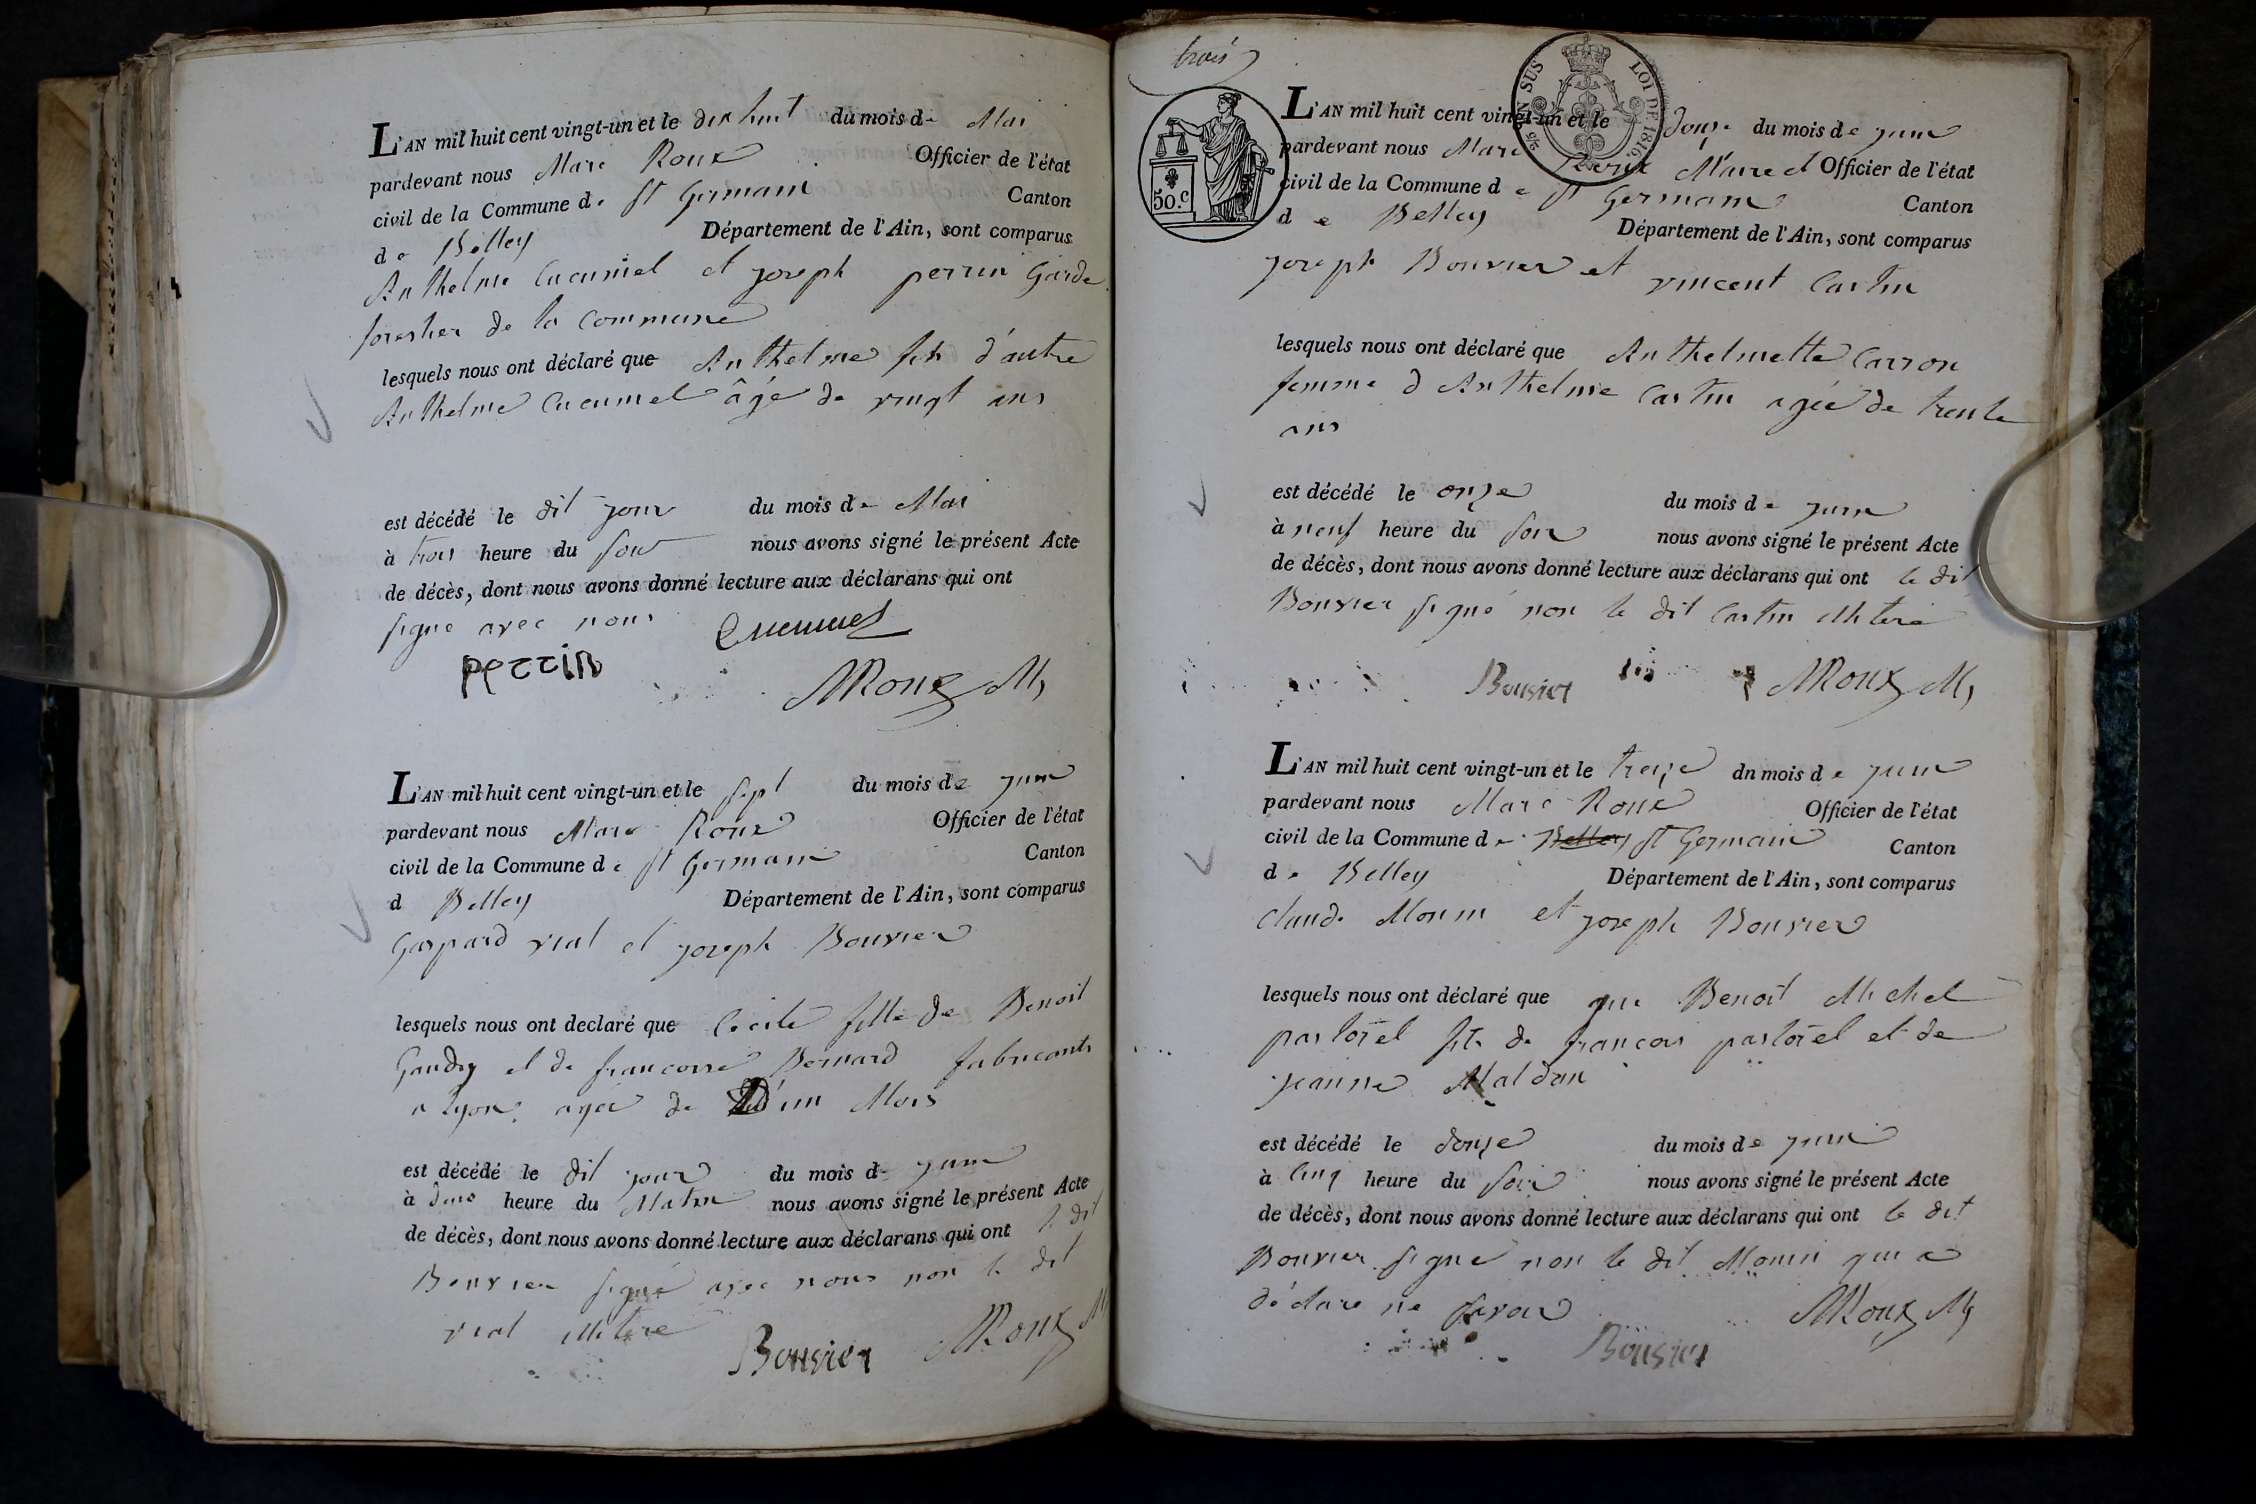 L'AN mil huit cent vingt-un et le dix huit du mois de Mai
pardevant nous Marc Roux Officier de l'état
civil de la Commune de St Germain Canton
de Belley Département de l'Ain, sont comparus
Anthelme Cucuniel et joseph perrin Garde
forestier de la commune
lesquels nous ont déclaré que Anthelme fils d'autre
Anthelme Cucuniel âgé de vingt ans
est décédé le dit jour du mois de Mai
à trois heure du soir nous avons signé le présent Acte
de décès, dont nous avons donné lecture aux déclarans qui ont
signé avec nous
perrin
MRoux M,
L'AN mil huit cent vingt-un et le sept du mois de juin
pardevant nous Marc Roux Officier de l'état
civil de la Commune de St Germain Canton
d Belley Département de l'Ain, sont comparus
Gaspard vial et joseph Bouvier
lesquels nous ont declaré que Cécile fille de Benoit
Gaudry et de francoise Bernard fabricants
a Lyon agée de d'un Mois
est décédé le dit jour du mois de juin
à deux heure du Matin nous avons signé le présent Acte
de décès, dont nous avons donné lecture aux déclarans qui ont le dit
Bouvier signé avec nous non le dit
vial illitéré
Bouvier MRoux M
trois
50.c
EN SUS LOI DE 1816.
L'AN mil huit cent vingt-un et le douze du mois de juin
pardevant nous Marc Roux Maire et Officier de l'état
civil de la Commune de St Germain Canton
de Belley Département de l'Ain, sont comparus
joseph Bouvier et vincent Castin
lesquels nous ont déclaré que Anthelmette Carron
femme d Anthelme Castin agée de trente
ans
est décédé le onze du mois de juin
à neuf heure du soir nous avons signé le présent Acte
de décès, dont nous avons donné lecture aux déclarans qui ont le dit
Bouvier signé non le dit Castin illitéré
Bouvier MRoux M,
L'AN mil huit cent vingt-un et le treize dn mois de juin
pardevant nous Marc Roux Officier de l'état
civil de la Commune de Belley St Germain Canton
de Belley Département de l'Ain, sont comparus
claude Monin et joseph Bouvier
lesquels nous ont déclaré que que Benoit Michel
pastorel fils de francois pastorel et de
jeanne Maldan
est décédé le douze du mois de juin
à cinq heure du soir nous avons signé le présent Acte
de décès, dont nous avons donné lecture aux déclarans qui ont le dit
Bouvier signé non le dit Monin qui a
déclaré ne savoir MRoux M,
Bouvier